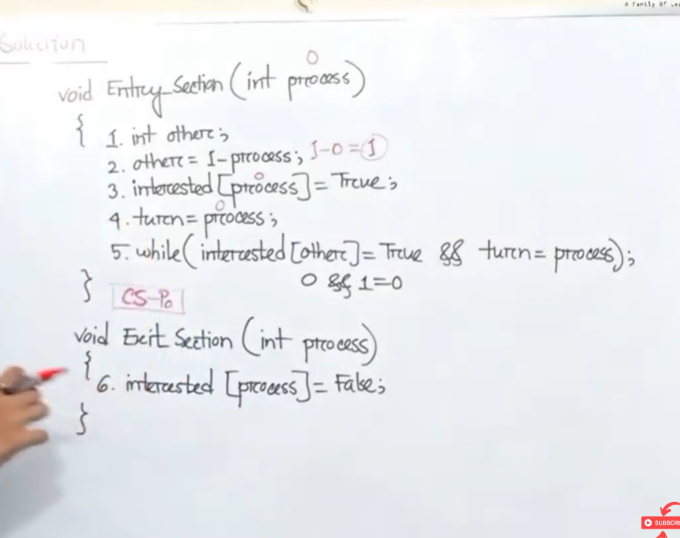 A Family Of
Solution
0
void Entry_Section (int process)
{ 1. int other;
2. other = 1-process; 1-0=1
0
3. interested [process] = True;
0
4. turn= process;
5. while( interested [other]= True && turn= process);
0 && 1=0
}
CS-P0
void Exit Section (int process)
{
6. interested [process]= False;
}
SUBSCRI